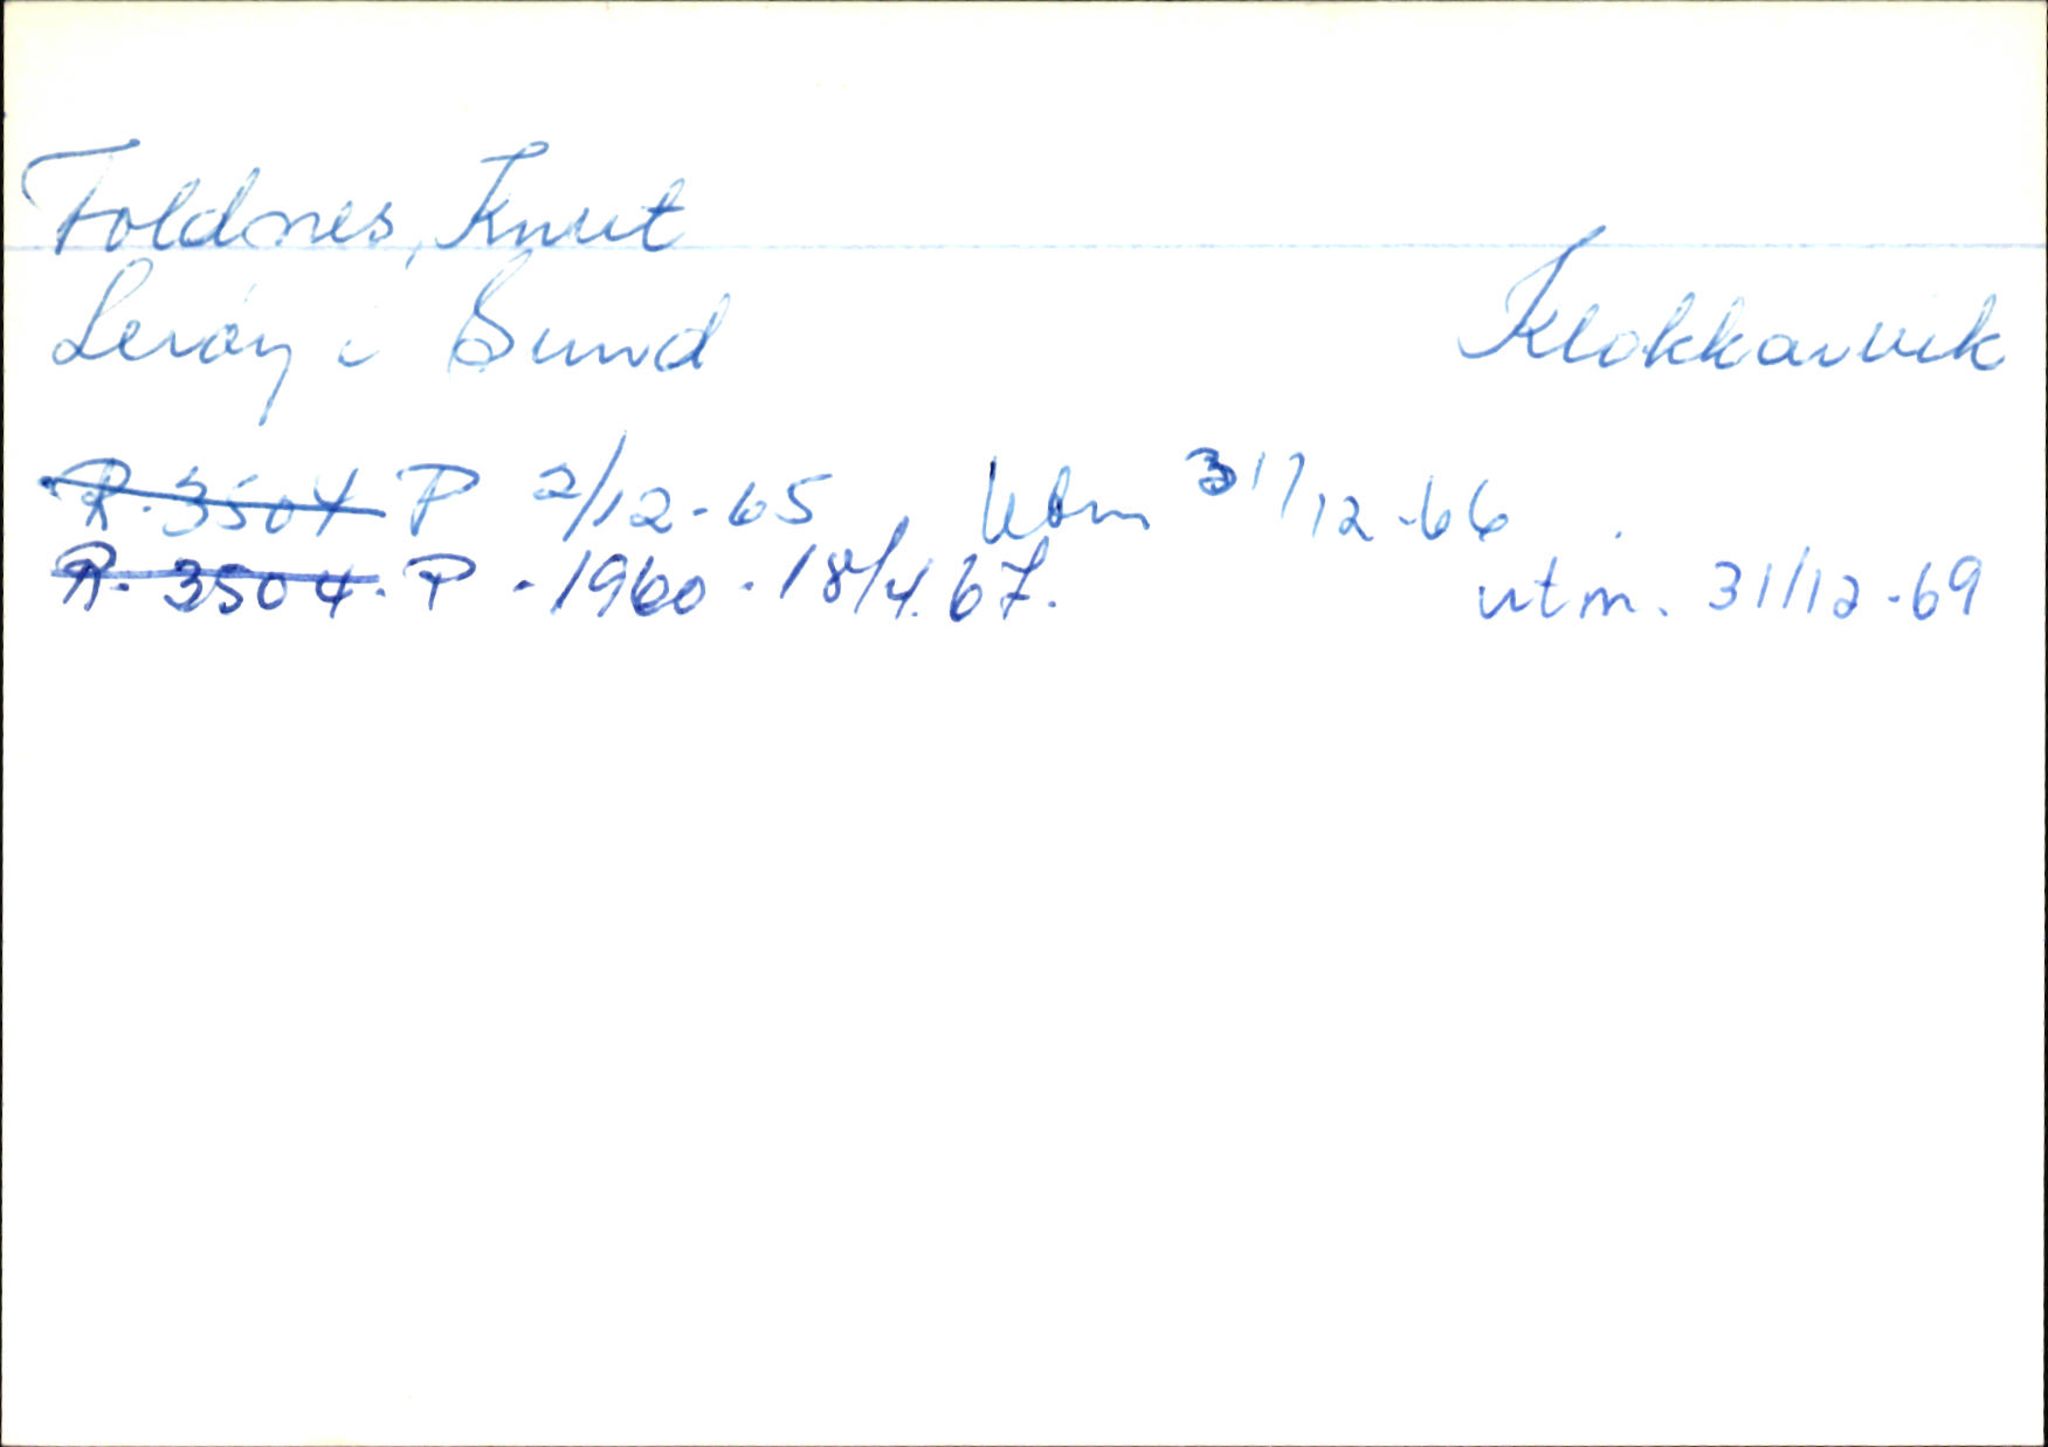 Foldnes, Knut
Lerøy i Sund Klokkarvik
R. 3504 P 2/12-65 Utm 31/12-66
R. 3504. P - 1960 - 18/4.67. utm. 31/12-69